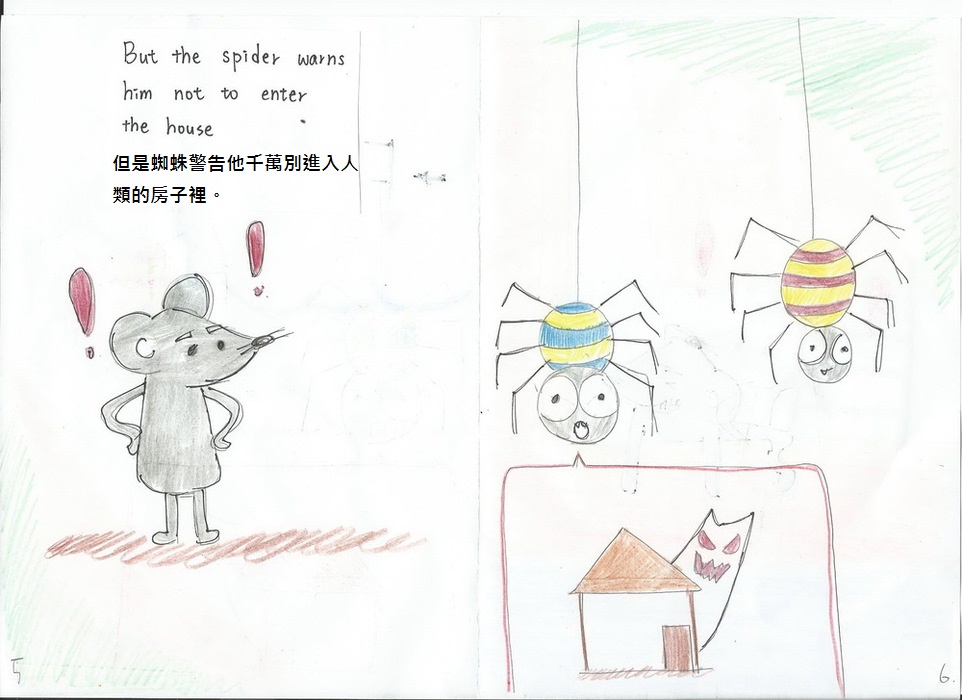 But the spider warns
him not to enter
the house
但是蜘蛛警告他千萬別進入人
類的房子裡。
5
6.